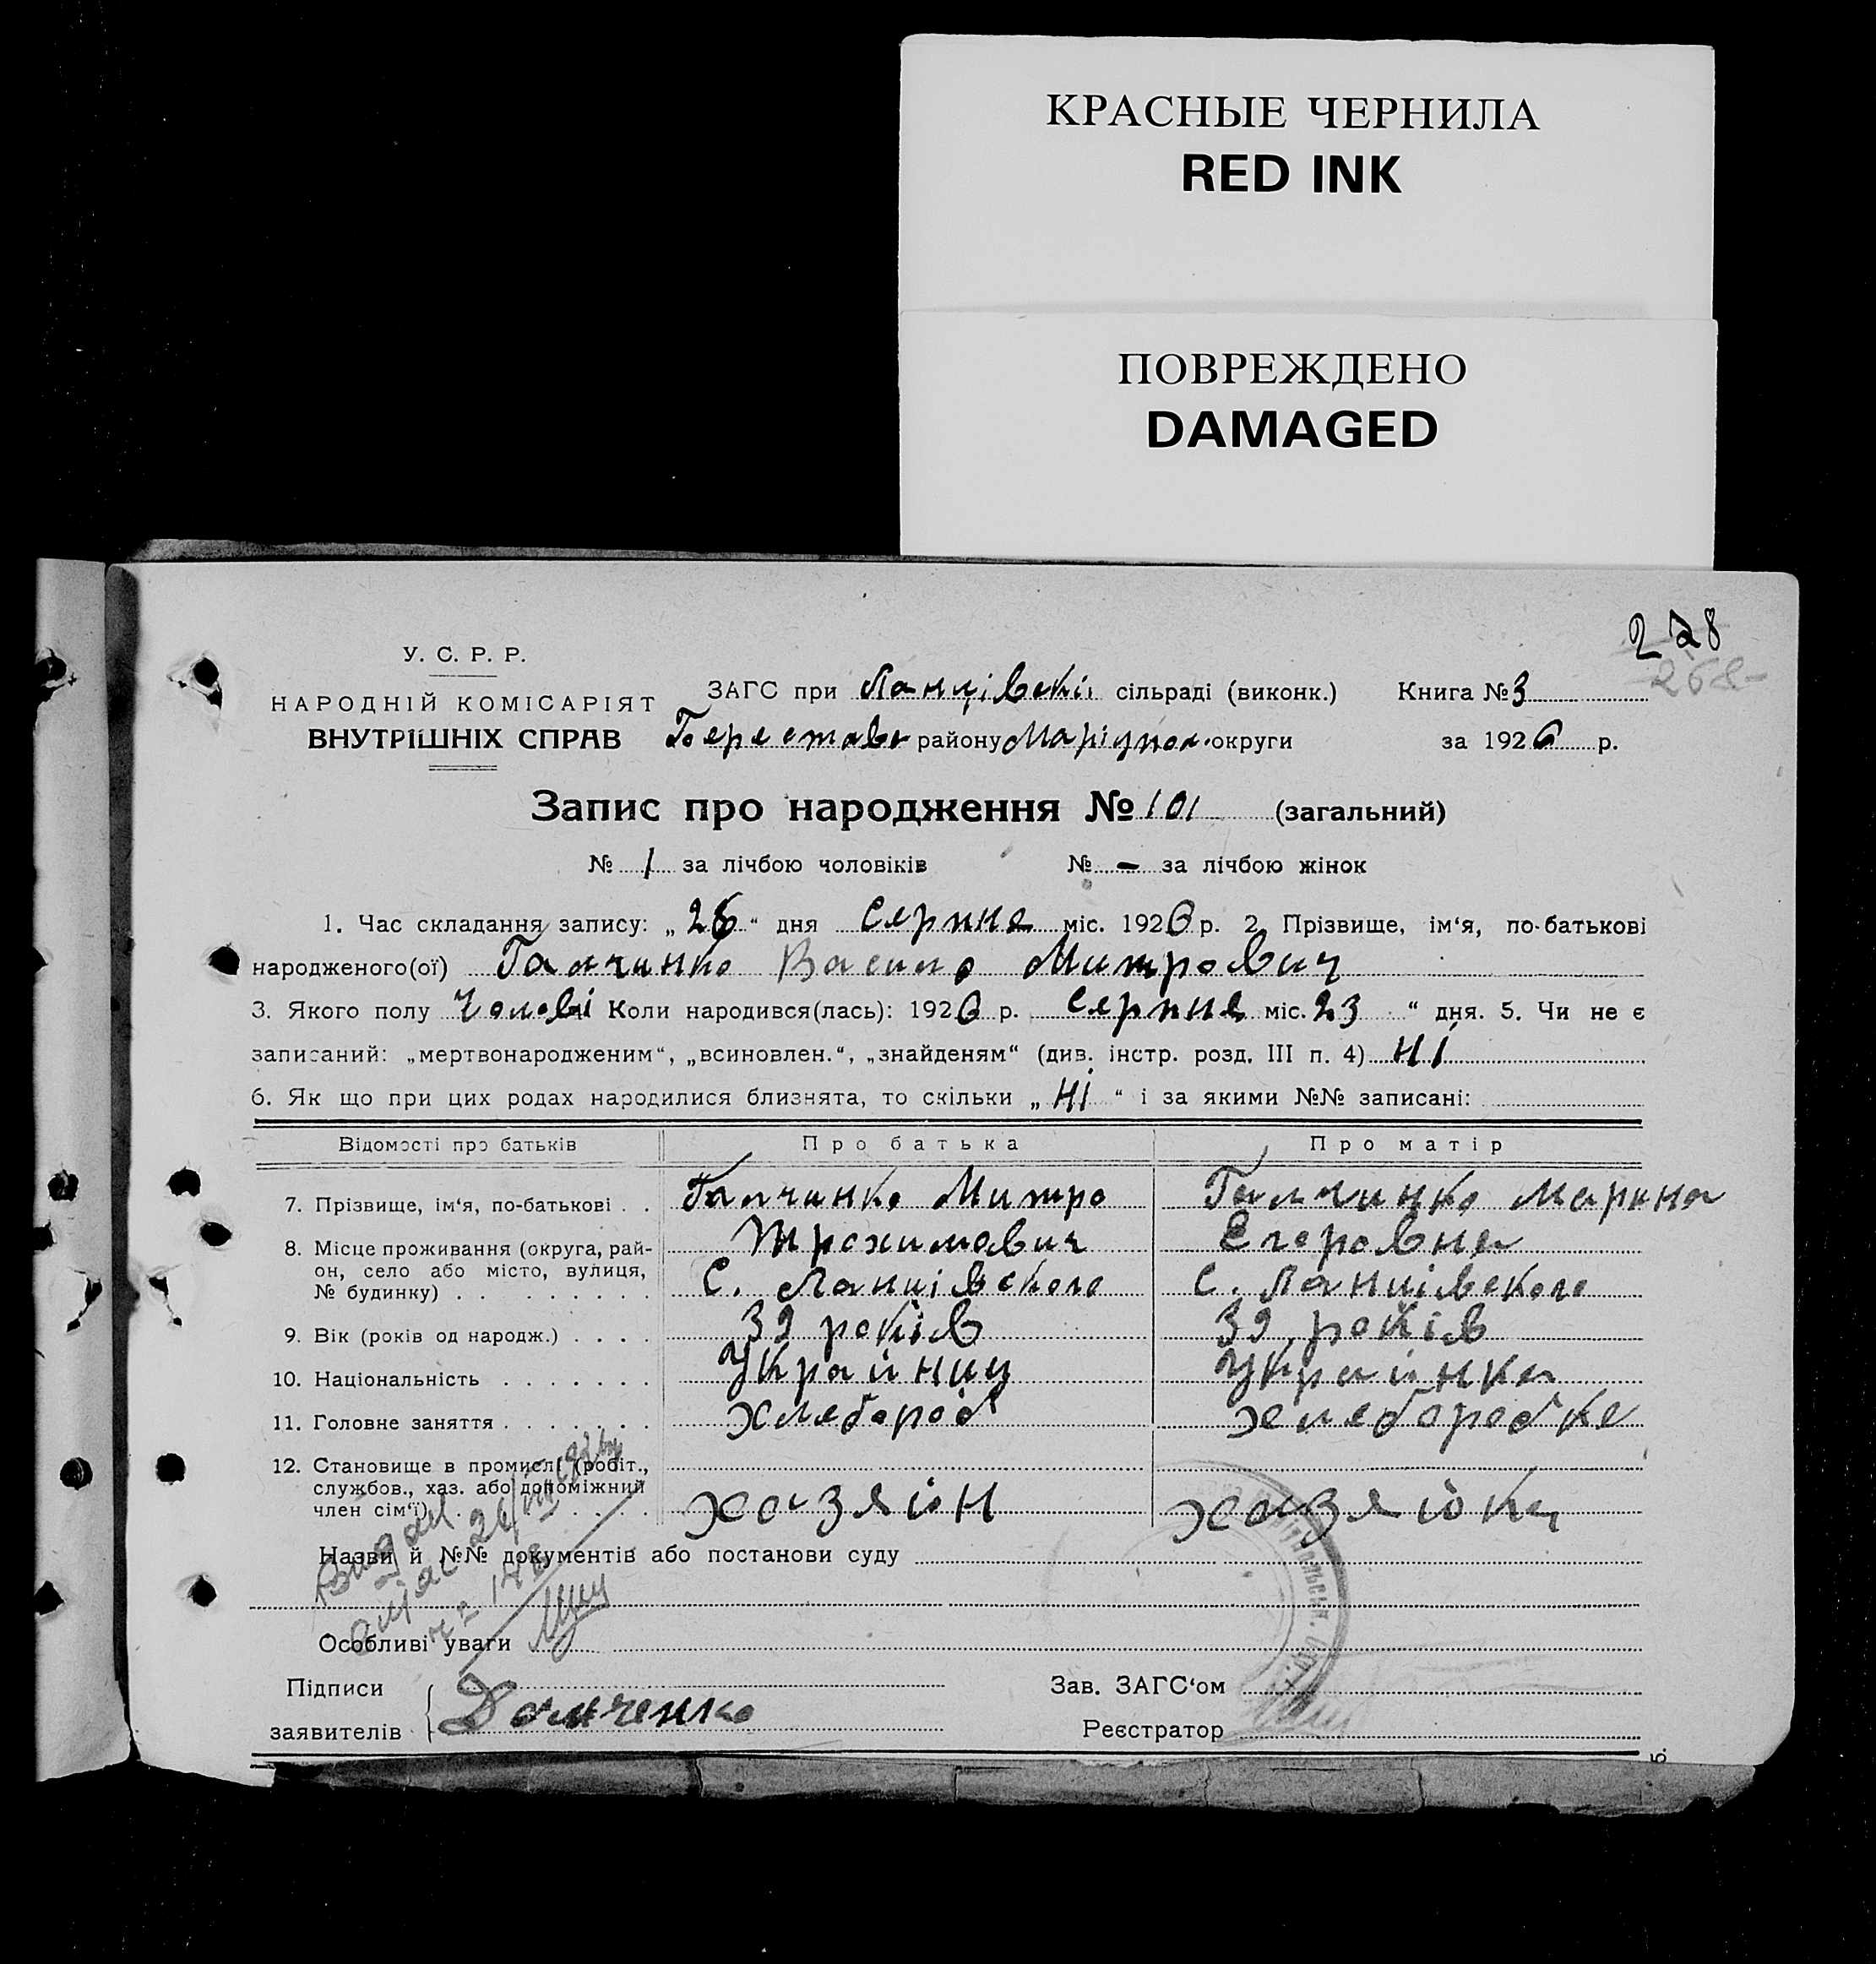 КРАСНЫЕ ЧЕРНИЛА
RED INK
ПОВРЕЖДЕНО
DAMAGED
228
268
У. С. Р. Р.
НАРОДНІЙ КОМІСАРІЯТ
ВНУТРІШНІХ СПРАВ
ЗАГС при Ланцівскій сільраді (виконк.) Книга № 3
Берестовс району Маріупол. округи за 1926 р.
Запис про народження № 101 (загальний)
№ 1 за лічбою чоловіків № – за лічбою жінок
1. Час складання запису: „26“ дня Серпня міс. 1926 р. 2. Прізвище, ім'я, по-батькові
народженого(ої) Галчинко Василь Митрович
3. Якого полу Чолові Коли народився(лась): 1926 р. Серпня міс. 23 “ дня. 5. Чи не є
записаний: „мертвонародженим“, „всиновлен.“, „знайденям“ (див. інстр. розд. III п. 4) Ні
6. Як що при цих родах народилися близнята, то скільки „Ні“ і за якими №№ записані:
Відомості про батьків Про батька Про матір
7. Прізвище, ім'я, по-батькові . . Галчинко Митро Галчинко Марина
Трохимович Єгоровна
8. Місце проживання (округа, рай-
он, село або місто, вулиця,
№ будинку) . . . . . . . . . С. Ланцівского С. Ланцівского
9. Вік (років од народж.) . . . . 39 років 39 років
10. Національність . . . . . . . Українец Українка
11. Головне заняття . . . . . . . хлебороб хлеборобка
12. Становище в промислі (робіт.,
службов., хаз. або допоміжний
член сім'ї) . . . . . . . . . хазяін хазяйка
Назви й №№ документів або постанови суду
Видан
Особливі уваги
Підписи
заявителів Домченко
Зав. ЗАГС'ом
Реєстратор